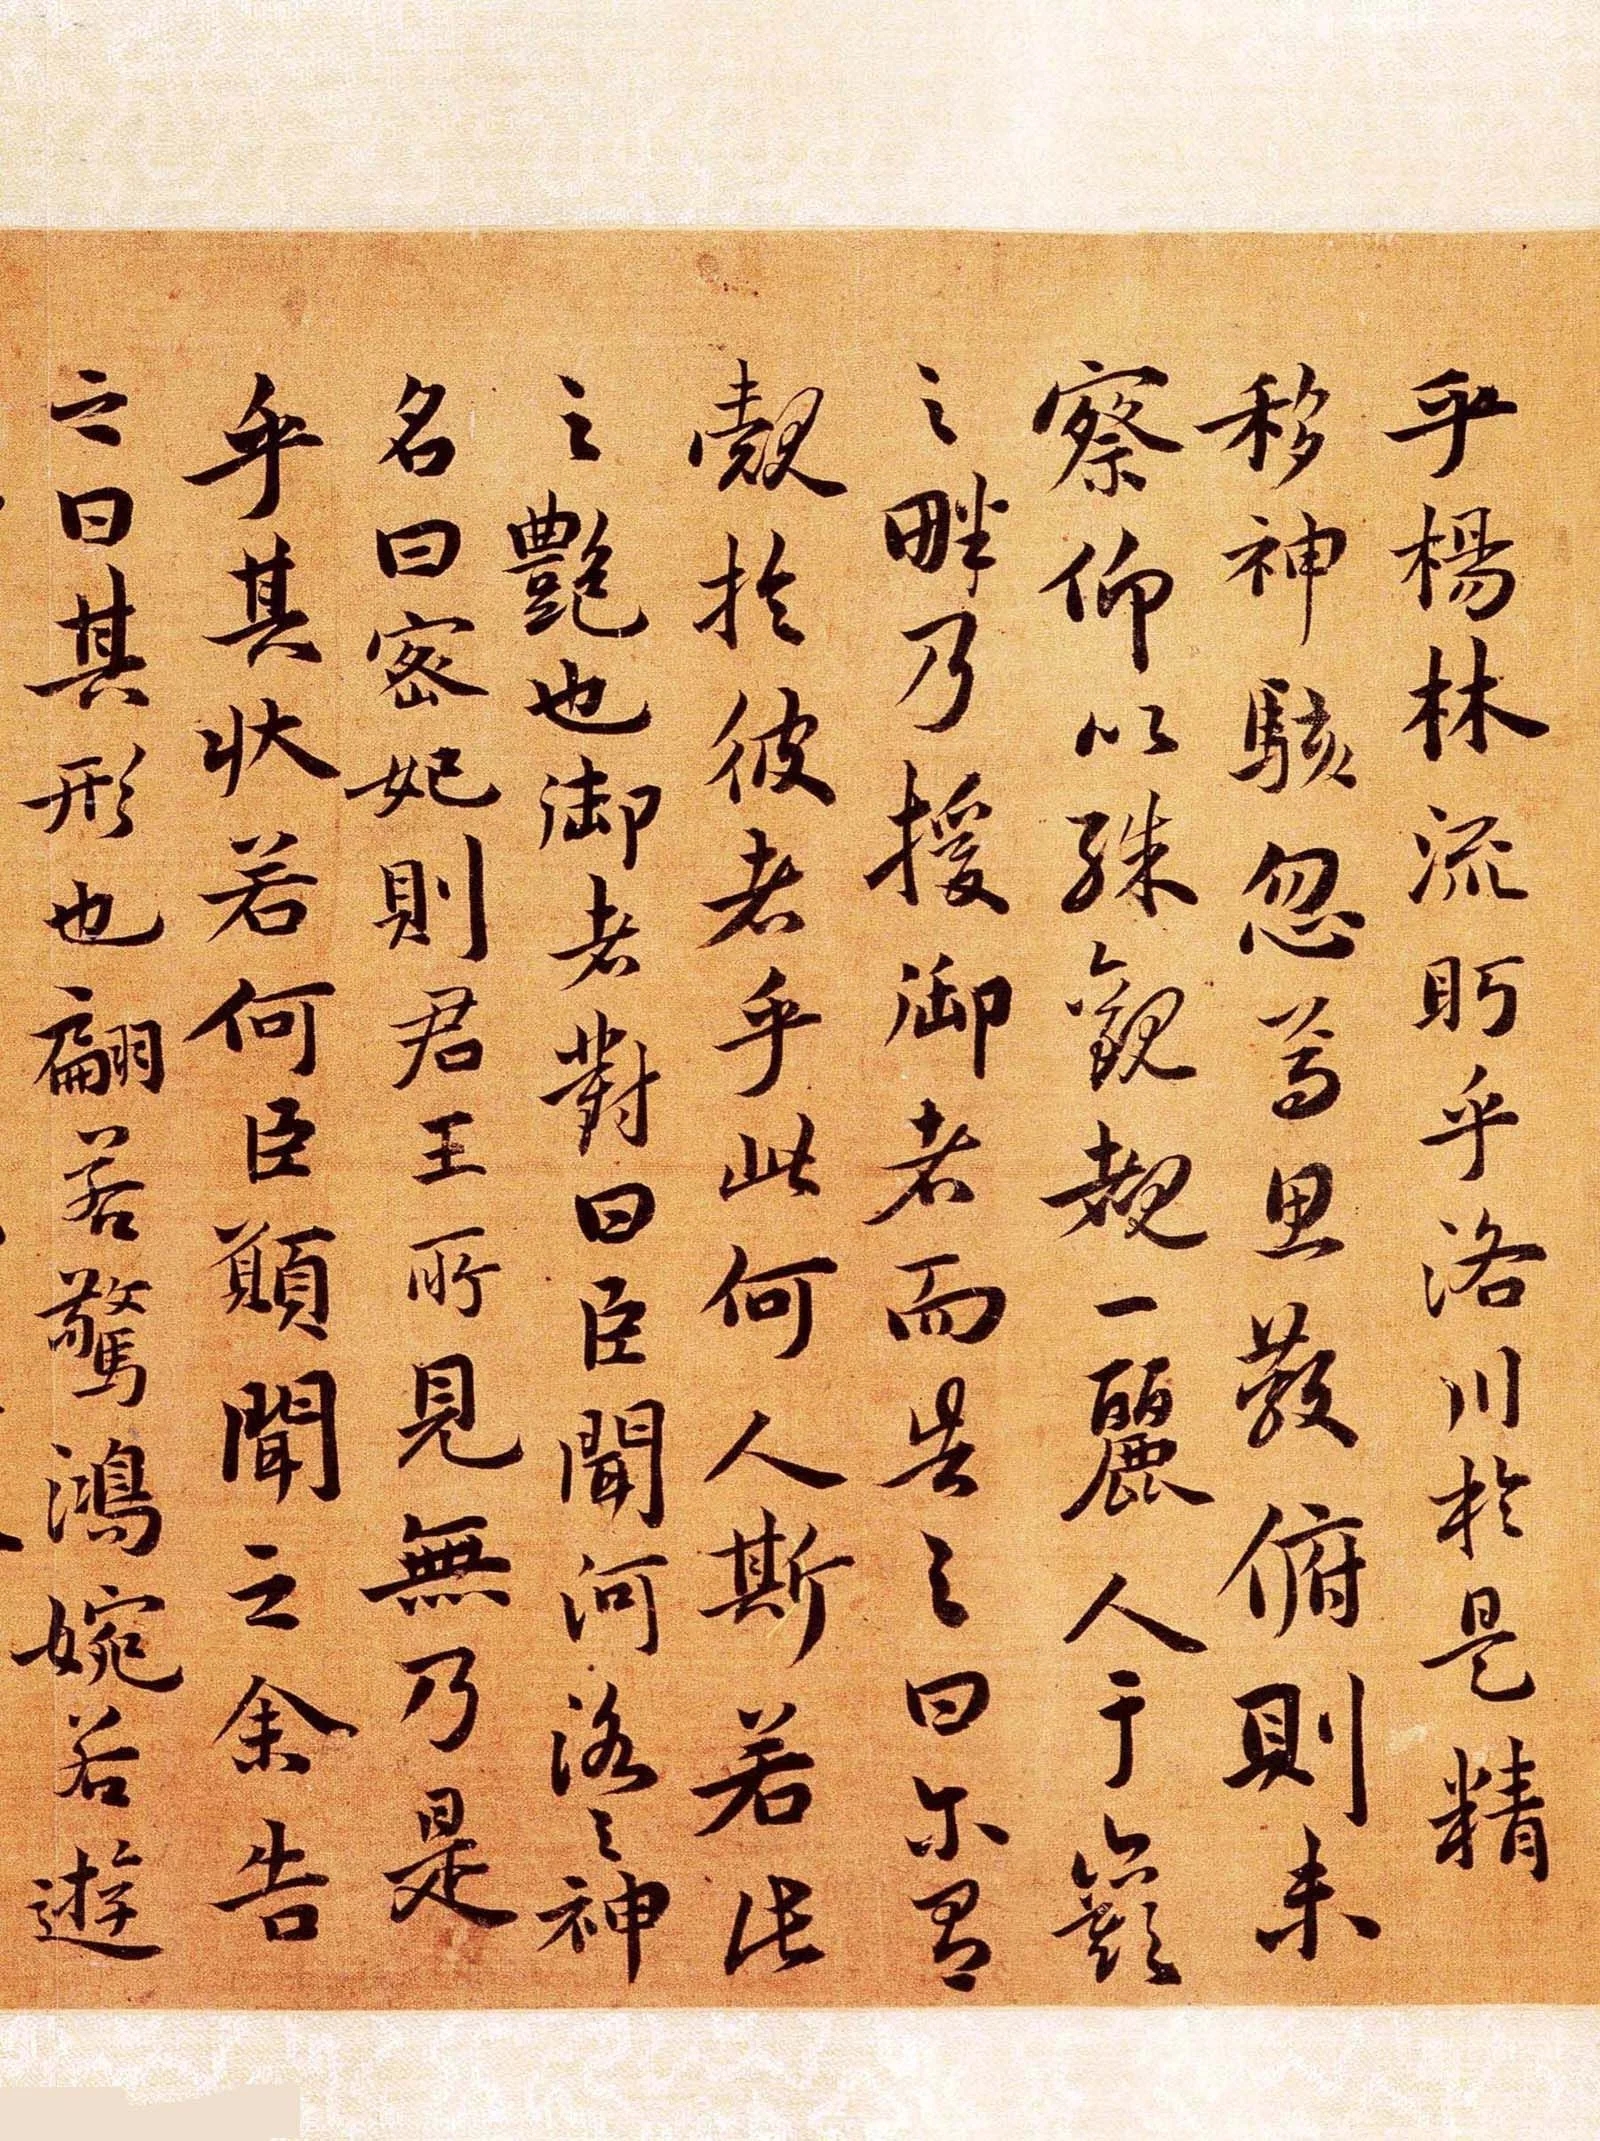 乎楊林流眄乎洛川於是精
移神駭忽焉思散俯則未
察仰以殊觀覩一麗人于巖
之畔乃援御者而告之曰尔有
覿於彼者乎此何人斯若此
之艷也御者對曰臣聞河洛之神
名曰密妃則君王所見無乃是
乎其狀若何臣願聞之余告
之曰其形也翩若驚鴻婉若遊